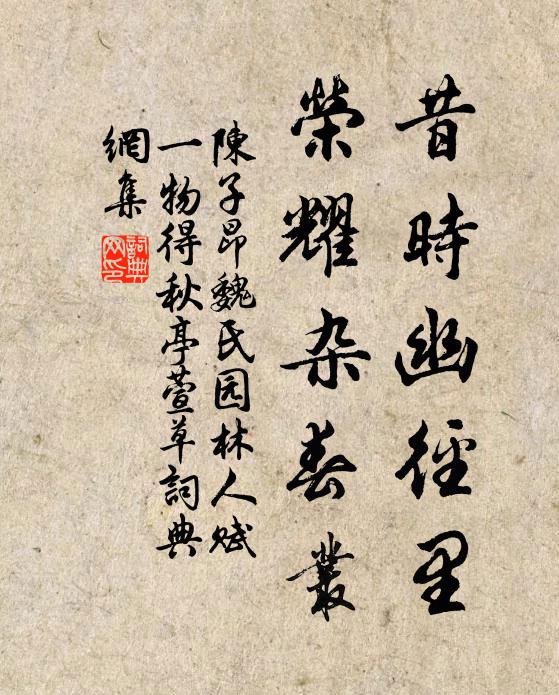 昔時幽徑里
榮耀杂春叢
陳子昂魏氏园林人赋
一物得秋亭萱草詞典
網集
詞典网印